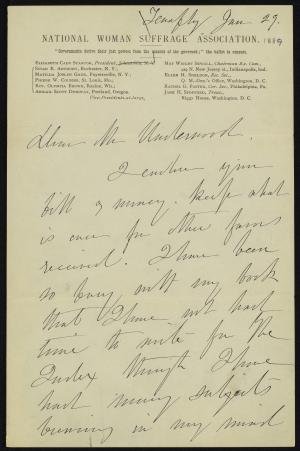 Tenafly Jan 29.
NATIONAL WOMAN SUFFRAGE ASSOCIATION. 1889
"Governments derive their just powers from the consent of the governed;" the ballot is consent.
ELIZABETH CADY STANTON, President,
SUSAN B. ANTHONY, Rochester, N. Y.;
MATILDA JOSLYN GAGE, Fayetteville, N. Y.;
PHEBE W. COUZINS, St. Louis, Mo.;
REV. OLYMPIA BROWN, Racine, Wis.;
ABIGAIL SCOTT DUNIWAY, Portland, Oregon.
Vice-Presidents-at-large.
MAY WRIGHT SEWALL, Chairman Ex. Com.,
N. New Jersey st., Indianapolis, Ind.
ELLEN H. SHELDON, Rec. Sec.,
Q. M.-Gen.'s Office, Washington, D. C.
RACHEL G. FOSTER, Cor. Sec., Philadelphia, Pa.
JANE H. SPOFFORD, Treas.,
Riggs House, Washington, D. C.
Dear Mr Underwood.
I enclose your
bill & money. Keep what
is over for other favors
received. I have been
so busy with my book
that I have not had
time to write for the
Index though I have
had many subjects
burning in my mind